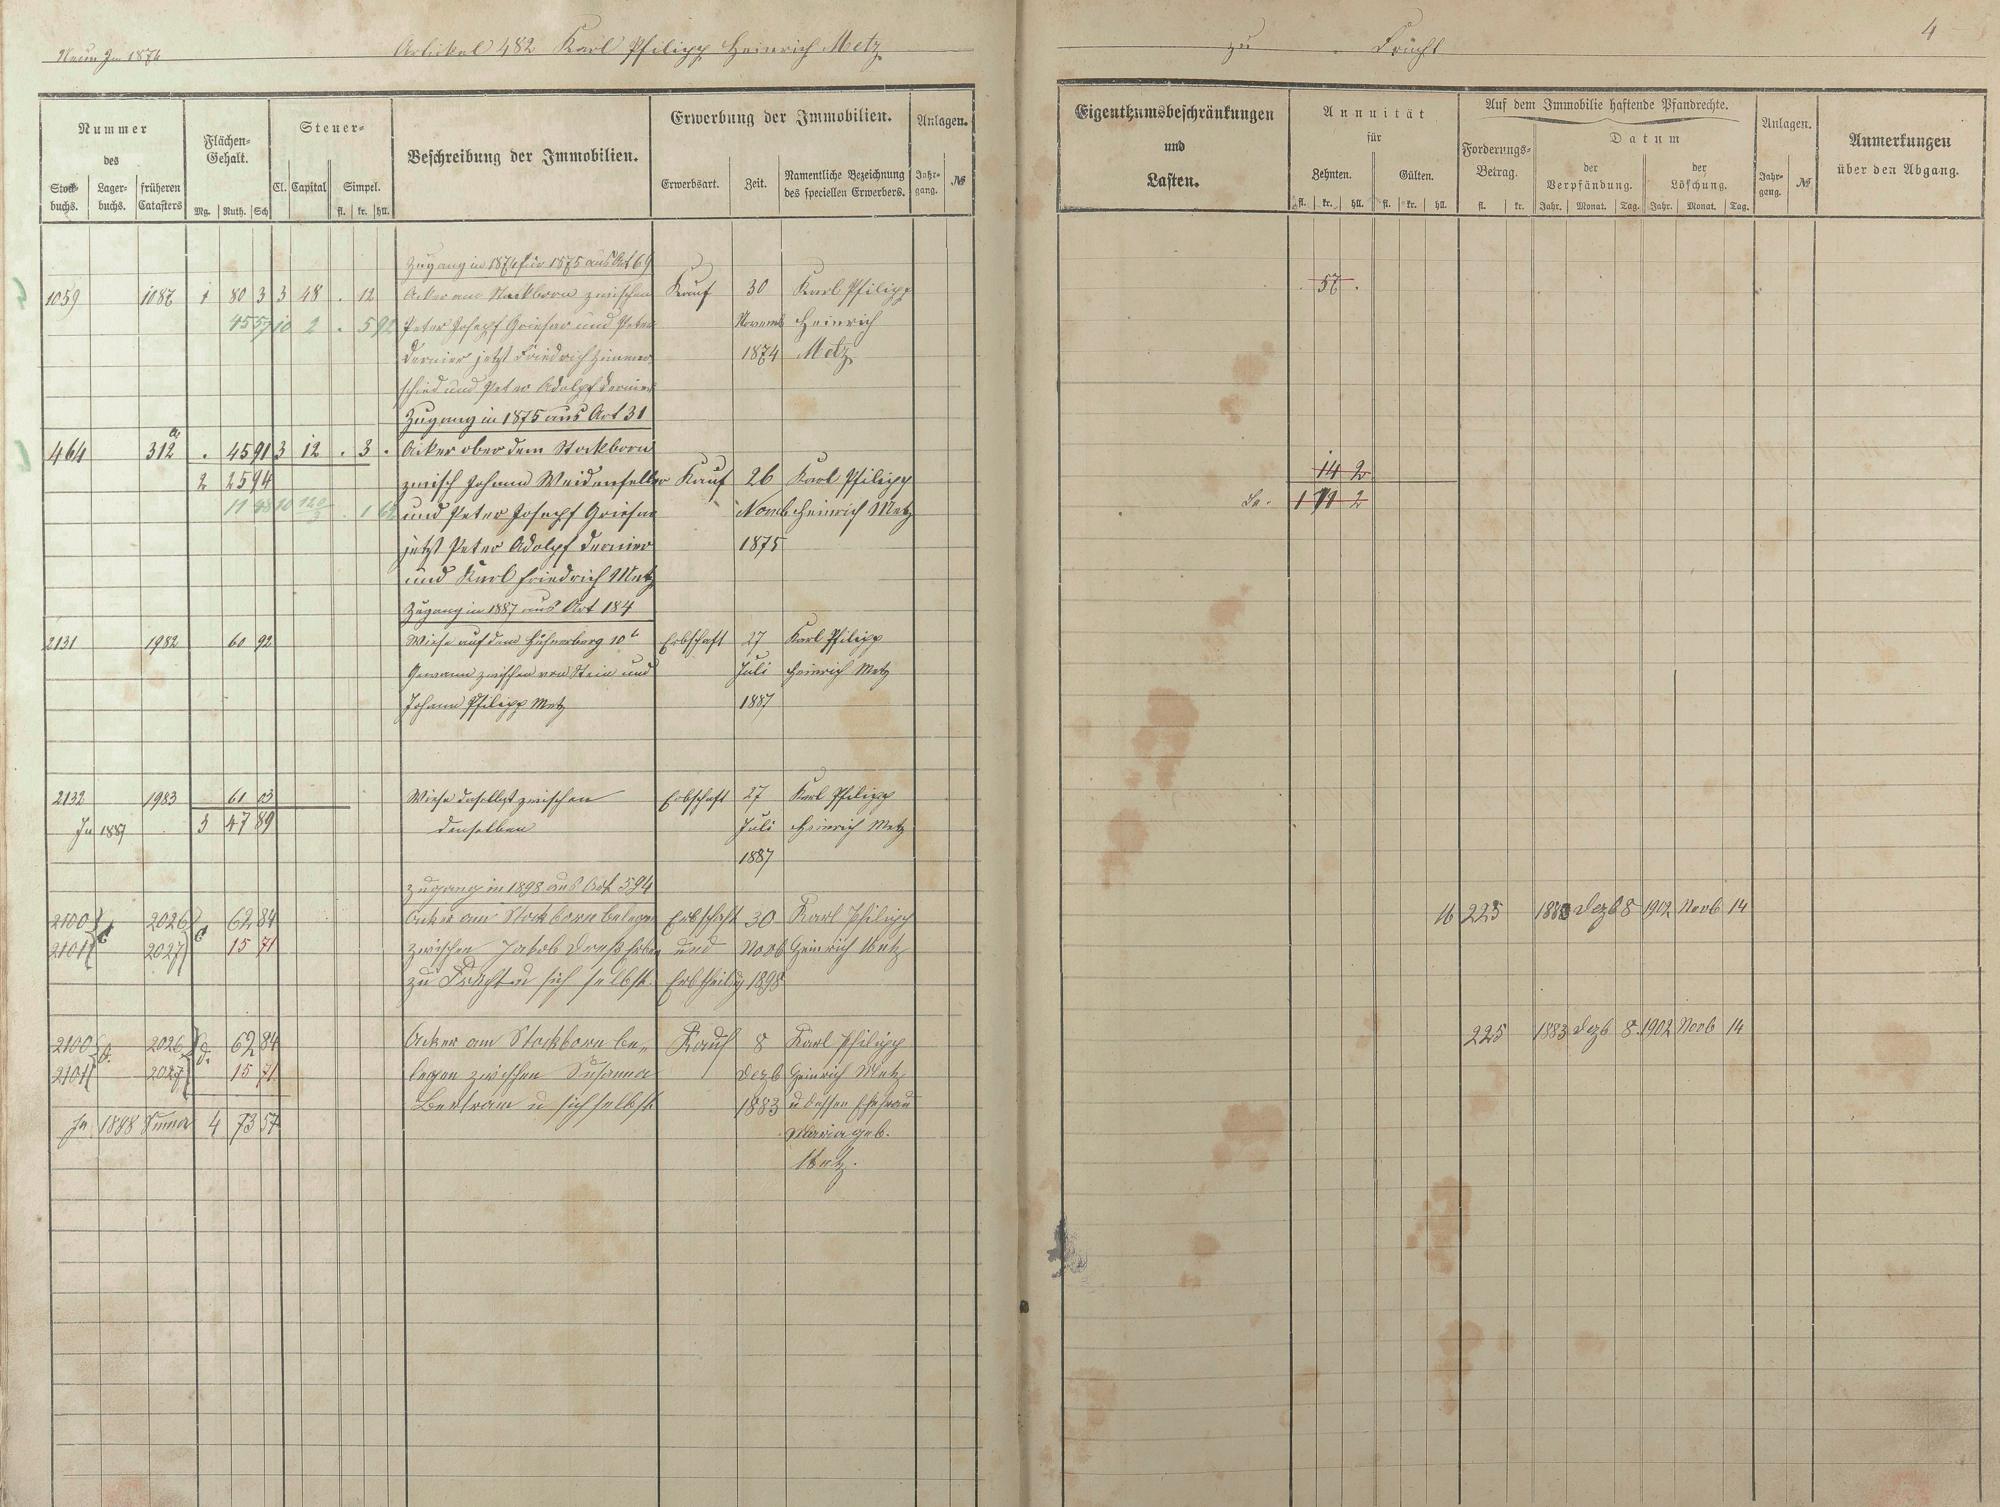 Neun Jn 1874 Artikel 482 Karl Philipp Heinrich Metz
zu Frücht 4
Nummer
des
Stock-
buchs.
Lager-
buchs.
früheren
Catasters
Flächen-
Gehalt.
Mg. Ruth. Sch
Steuer-
Cl. Capital Simpel.
fl. kr. hll.
Beschreibung der Immobilien.
Erwerbung der Immobilien.
Erwerbsart. Zeit.
Namentliche Bezeichnung
des speciellen Erwerbers.
Anlagen.
Jahr-
gang. №
Eigenthumsbeschränkungen
und
Lasten.
Annuität
für
Zehnten. Gülten.
fl. kr. hll. fl. kr. hll.
Auf dem Immobilie haftende Pfandrechte.
Forderungs-
Betrag.
fl. kr.
Datum
der
Verpfändung.
der
Löschung.
Jahr. Monat. Tag. Jahr. Monat. Tag.
Anlagen.
Jahr-
gang. №
Anmerkungen
über den Abgang.
Zugang in 1874 für 1875 aus Art 69
1059 1087 1 80 3 3 48 . 12 Acker am Stockborn zwischen Kauf 30 Karl Philipp 57 .
45 57 10 2 . 5 92 Peter Joseph Griesar und Peter Novemb Heinrich
Dernier jetzt Friedrich Zimmer 1874 Metz
schied und Peter Adolph Dernier
Zugang in 1875 aus Art 31
464 312 a . 45 91 3 12 . 3 . Acker ober dem Stockborn
2 25 94 zwisch Johann Weidenfeller Kauf 26 Karl Philipp 14 2
10 . 1 und Peter Joseph Griesar Novmb Heinrich Metz 1 11 2
jetzt Peter Adolph Dernier 1875
und Karl Friedrich Metz
Zugang in 1887 aus Art 184
2131 1982 60 92 Wiese auf dem Hühnerberg 10te Erbschaft 27 Karl Philipp
Gewann zwischen von Stein und Juli Heinrich Metz
Johann Philipp Metz 1887
2132 1983 61 03 Wiese daselbst zwischen Erbschaft 27 Karl Philipp
Jn 1887 3 47 89 denselben Juli Heinrich Metz
1887
Zugang in 1898 aus Art 594
2100 2026 62 84 Acker am Stockborn belegen Erbschaft 30 Karl Philipp 16 225 1883 Dezb 8 1902 Novb 14
2101 c 2027 c 15 71 zwischen Jakob Erben und Novb Heinrich Metz
zu Frücht u sich selbst Erbtheilg 1898
2100 2026 62 84 Acker am Stockborn be- Kauf 8 Karl Philipp 225 1883 Dezb 8 1902 Novb 14
2101 d. 2027 d. 15 71 legen zwischen Susanna Dezb Heinrich Metz
Bertram u sich selbst 1883 u dessen Ehefrau
Jn 1898 Summa 4 73 57 Maria geb.
Metz.